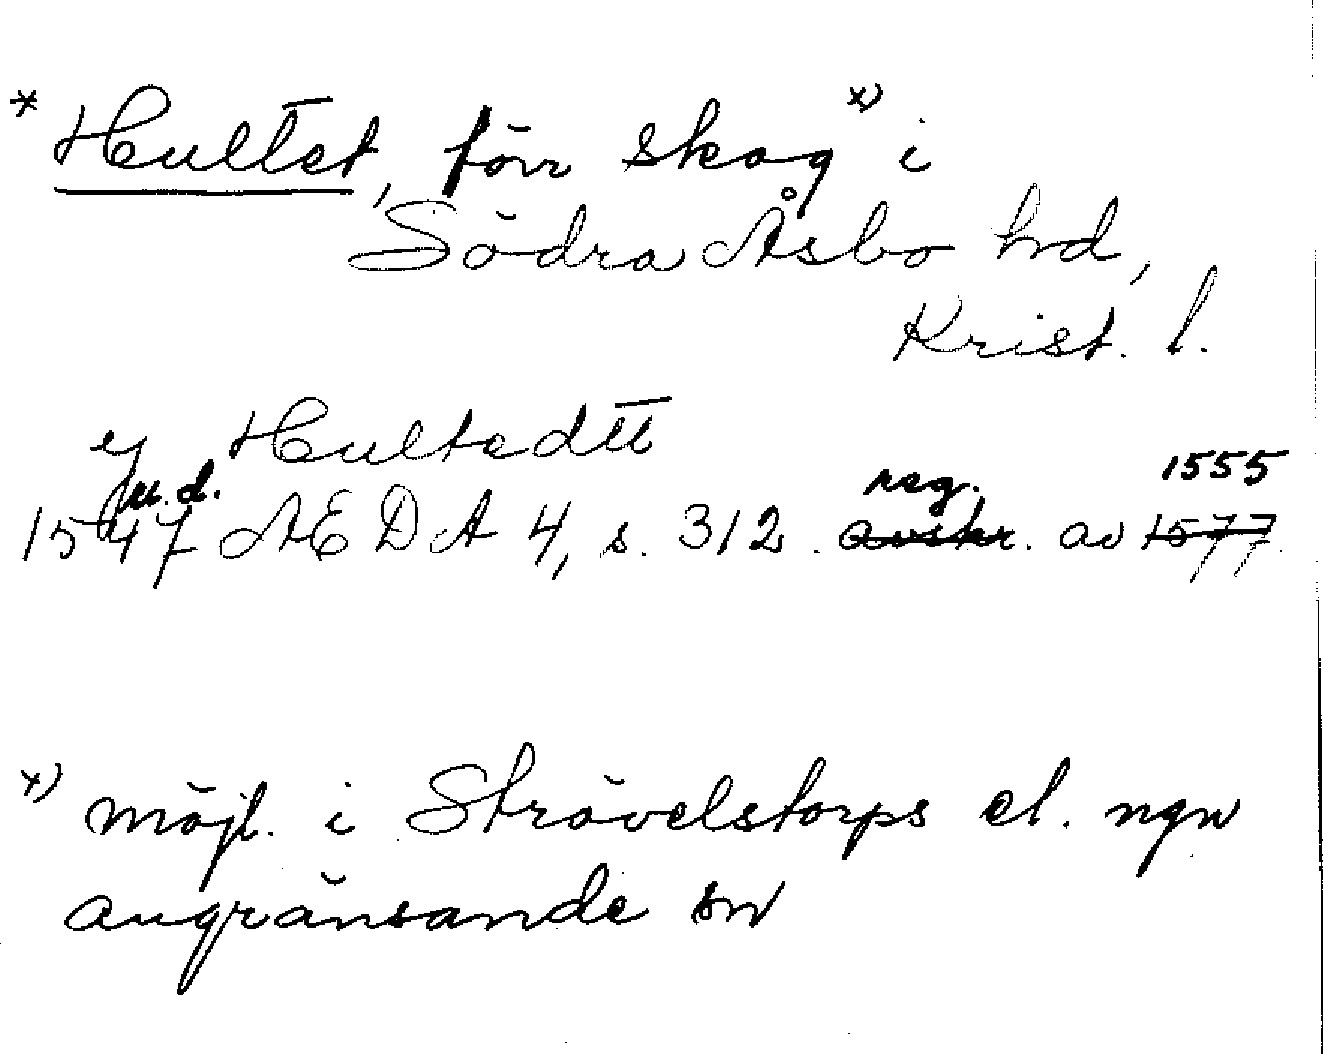 * Hultet, förr skog x) i
Södra Åsbo hrd,
Krist. l.
ij Hultedtt
u.d. reg. 1555
1547 AEDA 4, s. 312. avskr. av 1577.
x) möjl. i Strövelstorps el. ngn
angränsande sn